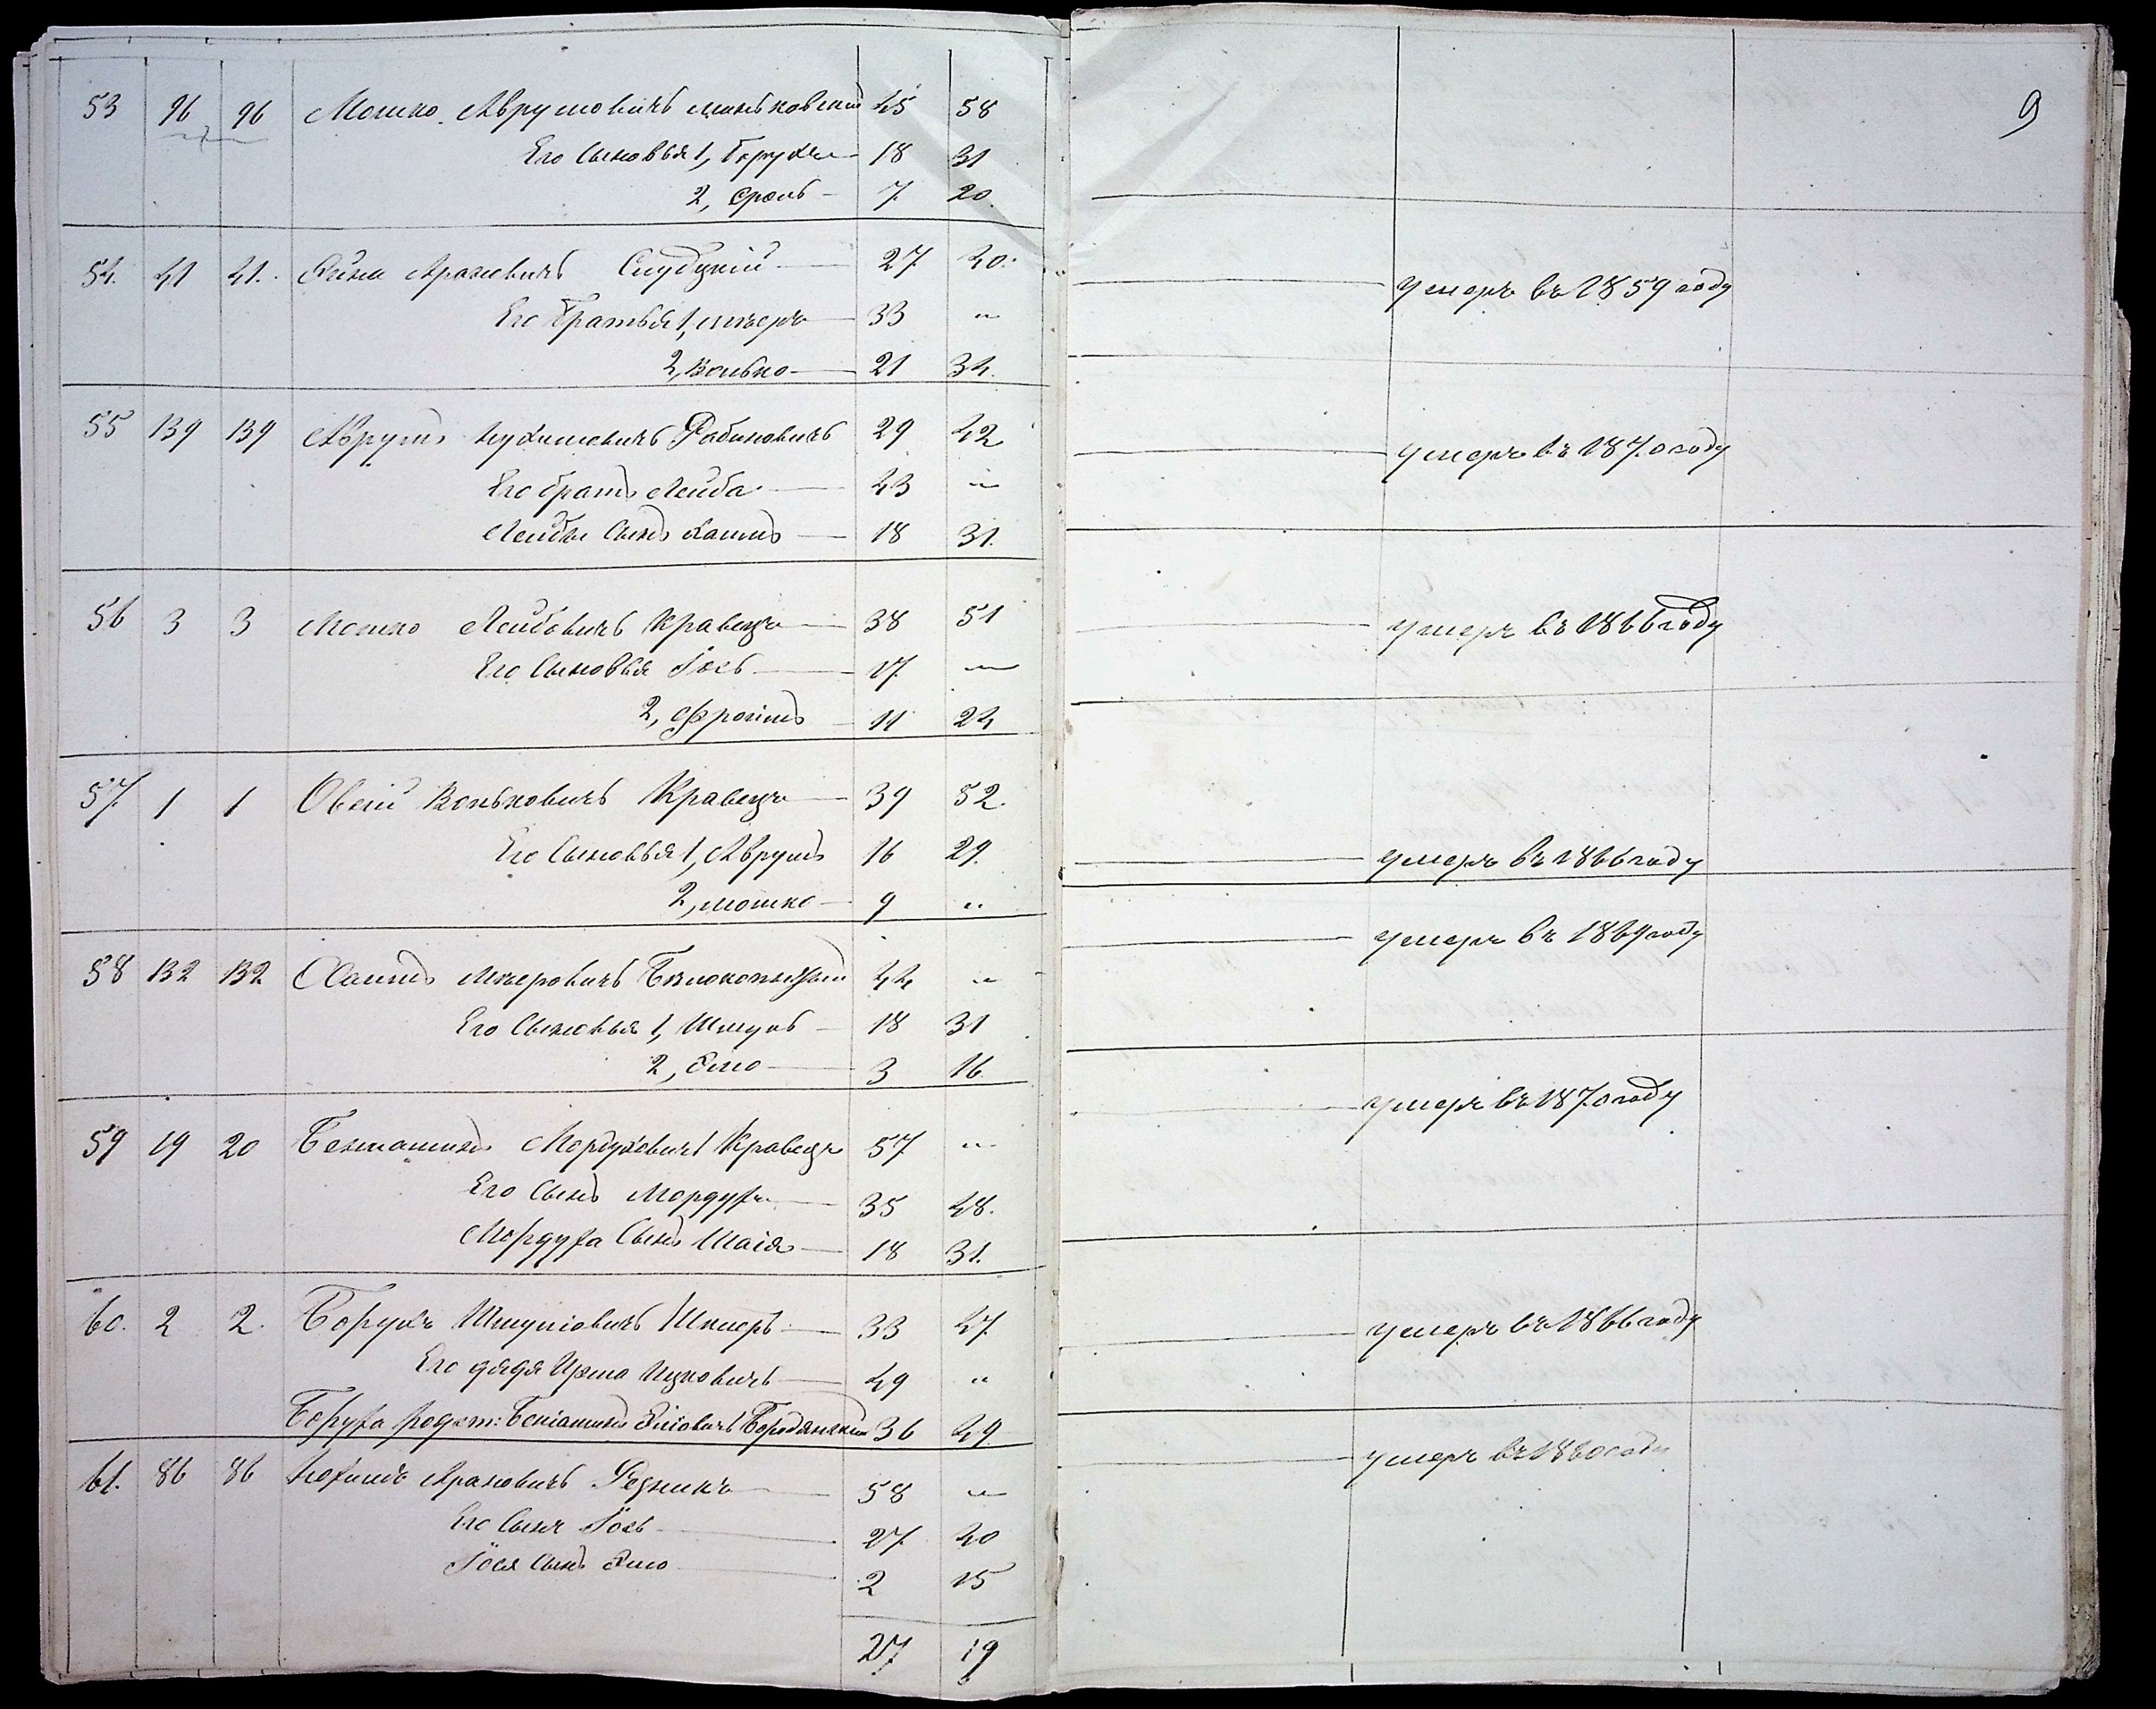 9
53 96 96 Мошко Аврумовичъ Маньковский 45 58
Его Сыновья 1, Борухъ 18 31
2, Сроль 7 20
54. 41 41. Хаимъ Ароновичъ Слуцкій 27 40.
Его Братья 1, Мееръ 33 " умеръ въ 1859 году
2, Волько 21 34.
55 139 139 Аврумъ Нухимовичъ Рабиновичъ 29 42
Его братъ Лейба 43 " умеръ въ 1870 году
Лейбы Сынъ Хаимъ 18 31.
56 3 3 Мошко Лейбовичъ Кравецъ 38 51
Его Сыновья Іось 17 " умеръ въ 1866 году
2, Фроимъ 11 24
57 1 1 Овсій Вольковичъ Кравецъ 39 52.
Его Сыновья 1, Аврумъ 16 29.
2, Мошко 9 " умеръ въ 1866 году
58 132 132 Хаимъ Мееровичъ 44 " умеръ въ 1869 году
Его Сыновья 1, Шмуль 18 31
2, Эльо 3 16
59 19 20 Беньаминъ Мордуховичъ Кравецъ 57 " умеръ въ 1870 году
Его Сынъ Мордухъ 35 48.
Мордуха Сынъ Шаія 18 31.
60. 2 2. Борухъ Шмуліовичъ 33 47
Его дядя Ицковичъ 49 " умеръ въ 1866 году
Боруха родст: Беніаминъ Эліовичъ Бородянский 36 49.
61. 86 86 Нохимъ Ароновичъ Резникъ 58 " умеръ въ 1860 году
Его Сынъ Іось 27 40
Іося Сынъ Эльо 2 15
27 19